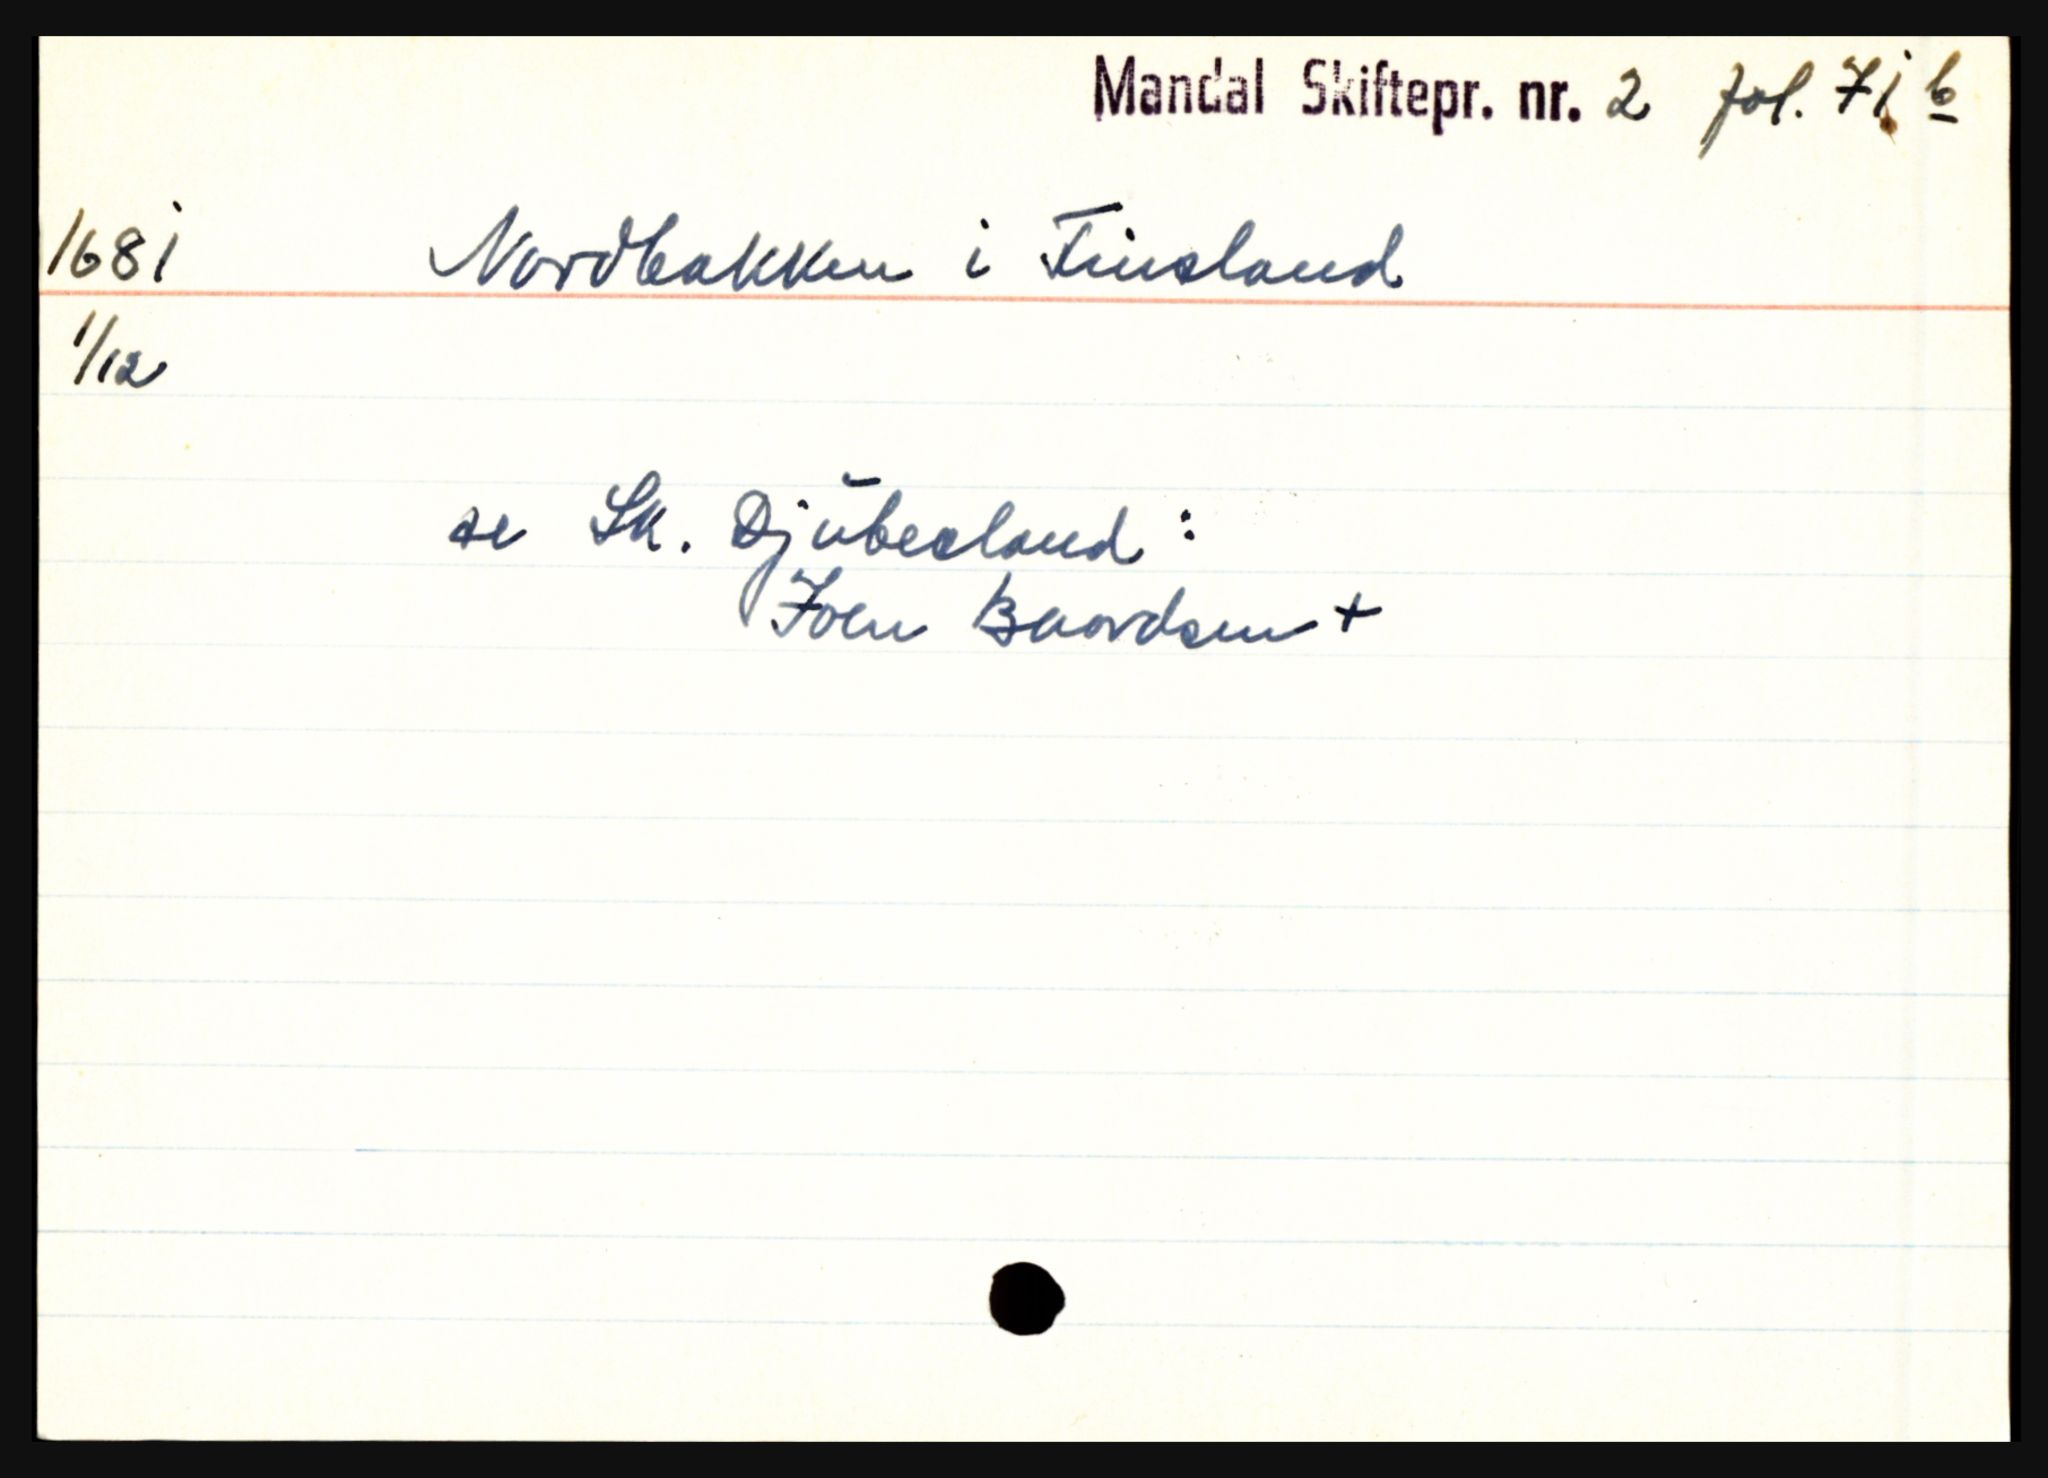 Mandal Skiftepr. nr. 2 fol. 71 b
1681 Nordbakken i Finsland
1/12
se Sk. Djŭbesland:
Joen Baardsen +